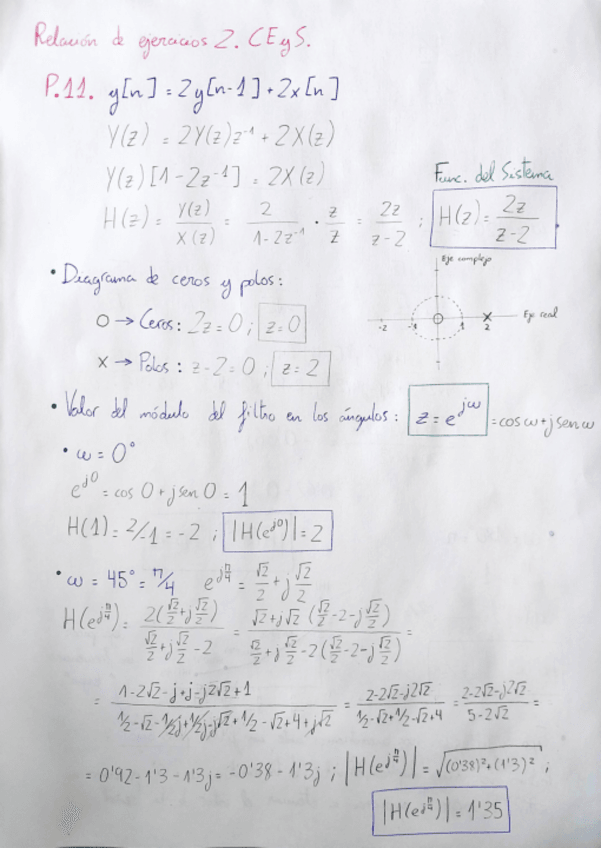 Relación de ejercicios 2. CEyS.
P.11. y[n] = 2y[n-1] + 2x[n]
Y(z) = 2Y(z)z⁻¹ + 2X(z)
Y(z)[1-2z⁻¹] = 2X(z)
Func. del Sistema
H(z) = Y(z)/X(z) = 2/(1-2z⁻¹) · z/z = 2z/(z-2) ; H(z) = 2z/(z-2)
• Diagrama de ceros y polos:
Eje complejo
O → Ceros: 2z = 0 ; z = 0
-2 -1 1 2 Eje real
x → Polos: z-2 = 0 ; z = 2
• Valor del módulo del filtro en los ángulos: z = e^(jω) = cos ω + j sen ω
• ω = 0°
e^(j0) = cos 0 + j sen 0 = 1
H(1) = 2/-1 = -2 ; |H(e^(j0))| = 2
• ω = 45° = π/4 e^(jπ/4) = √2/2 + j√2/2
H(e^(jπ/4)) = 2(√2/2 + j√2/2)/(√2/2 + j√2/2 - 2) = √2 + j√2 (√2/2 - 2 - j√2/2)/(√2/2 + j√2/2 - 2(√2/2 - 2 - j√2/2)) =
= (1-2√2-j+j-j2√2+1)/(1/2-√2-1/2j+1/2j-j√2+1/2-√2+4+j√2) = (2-2√2-j2√2)/(1/2-√2+1/2-√2+4) = (2-2√2-j2√2)/(5-2√2) =
= 0'92 - 1'3 - 1'3j = -0'38 - 1'3j ; |H(e^(jπ/4))| = √((0'38)² + (1'3)²) ;
|H(e^(jπ/4))| = 1'35